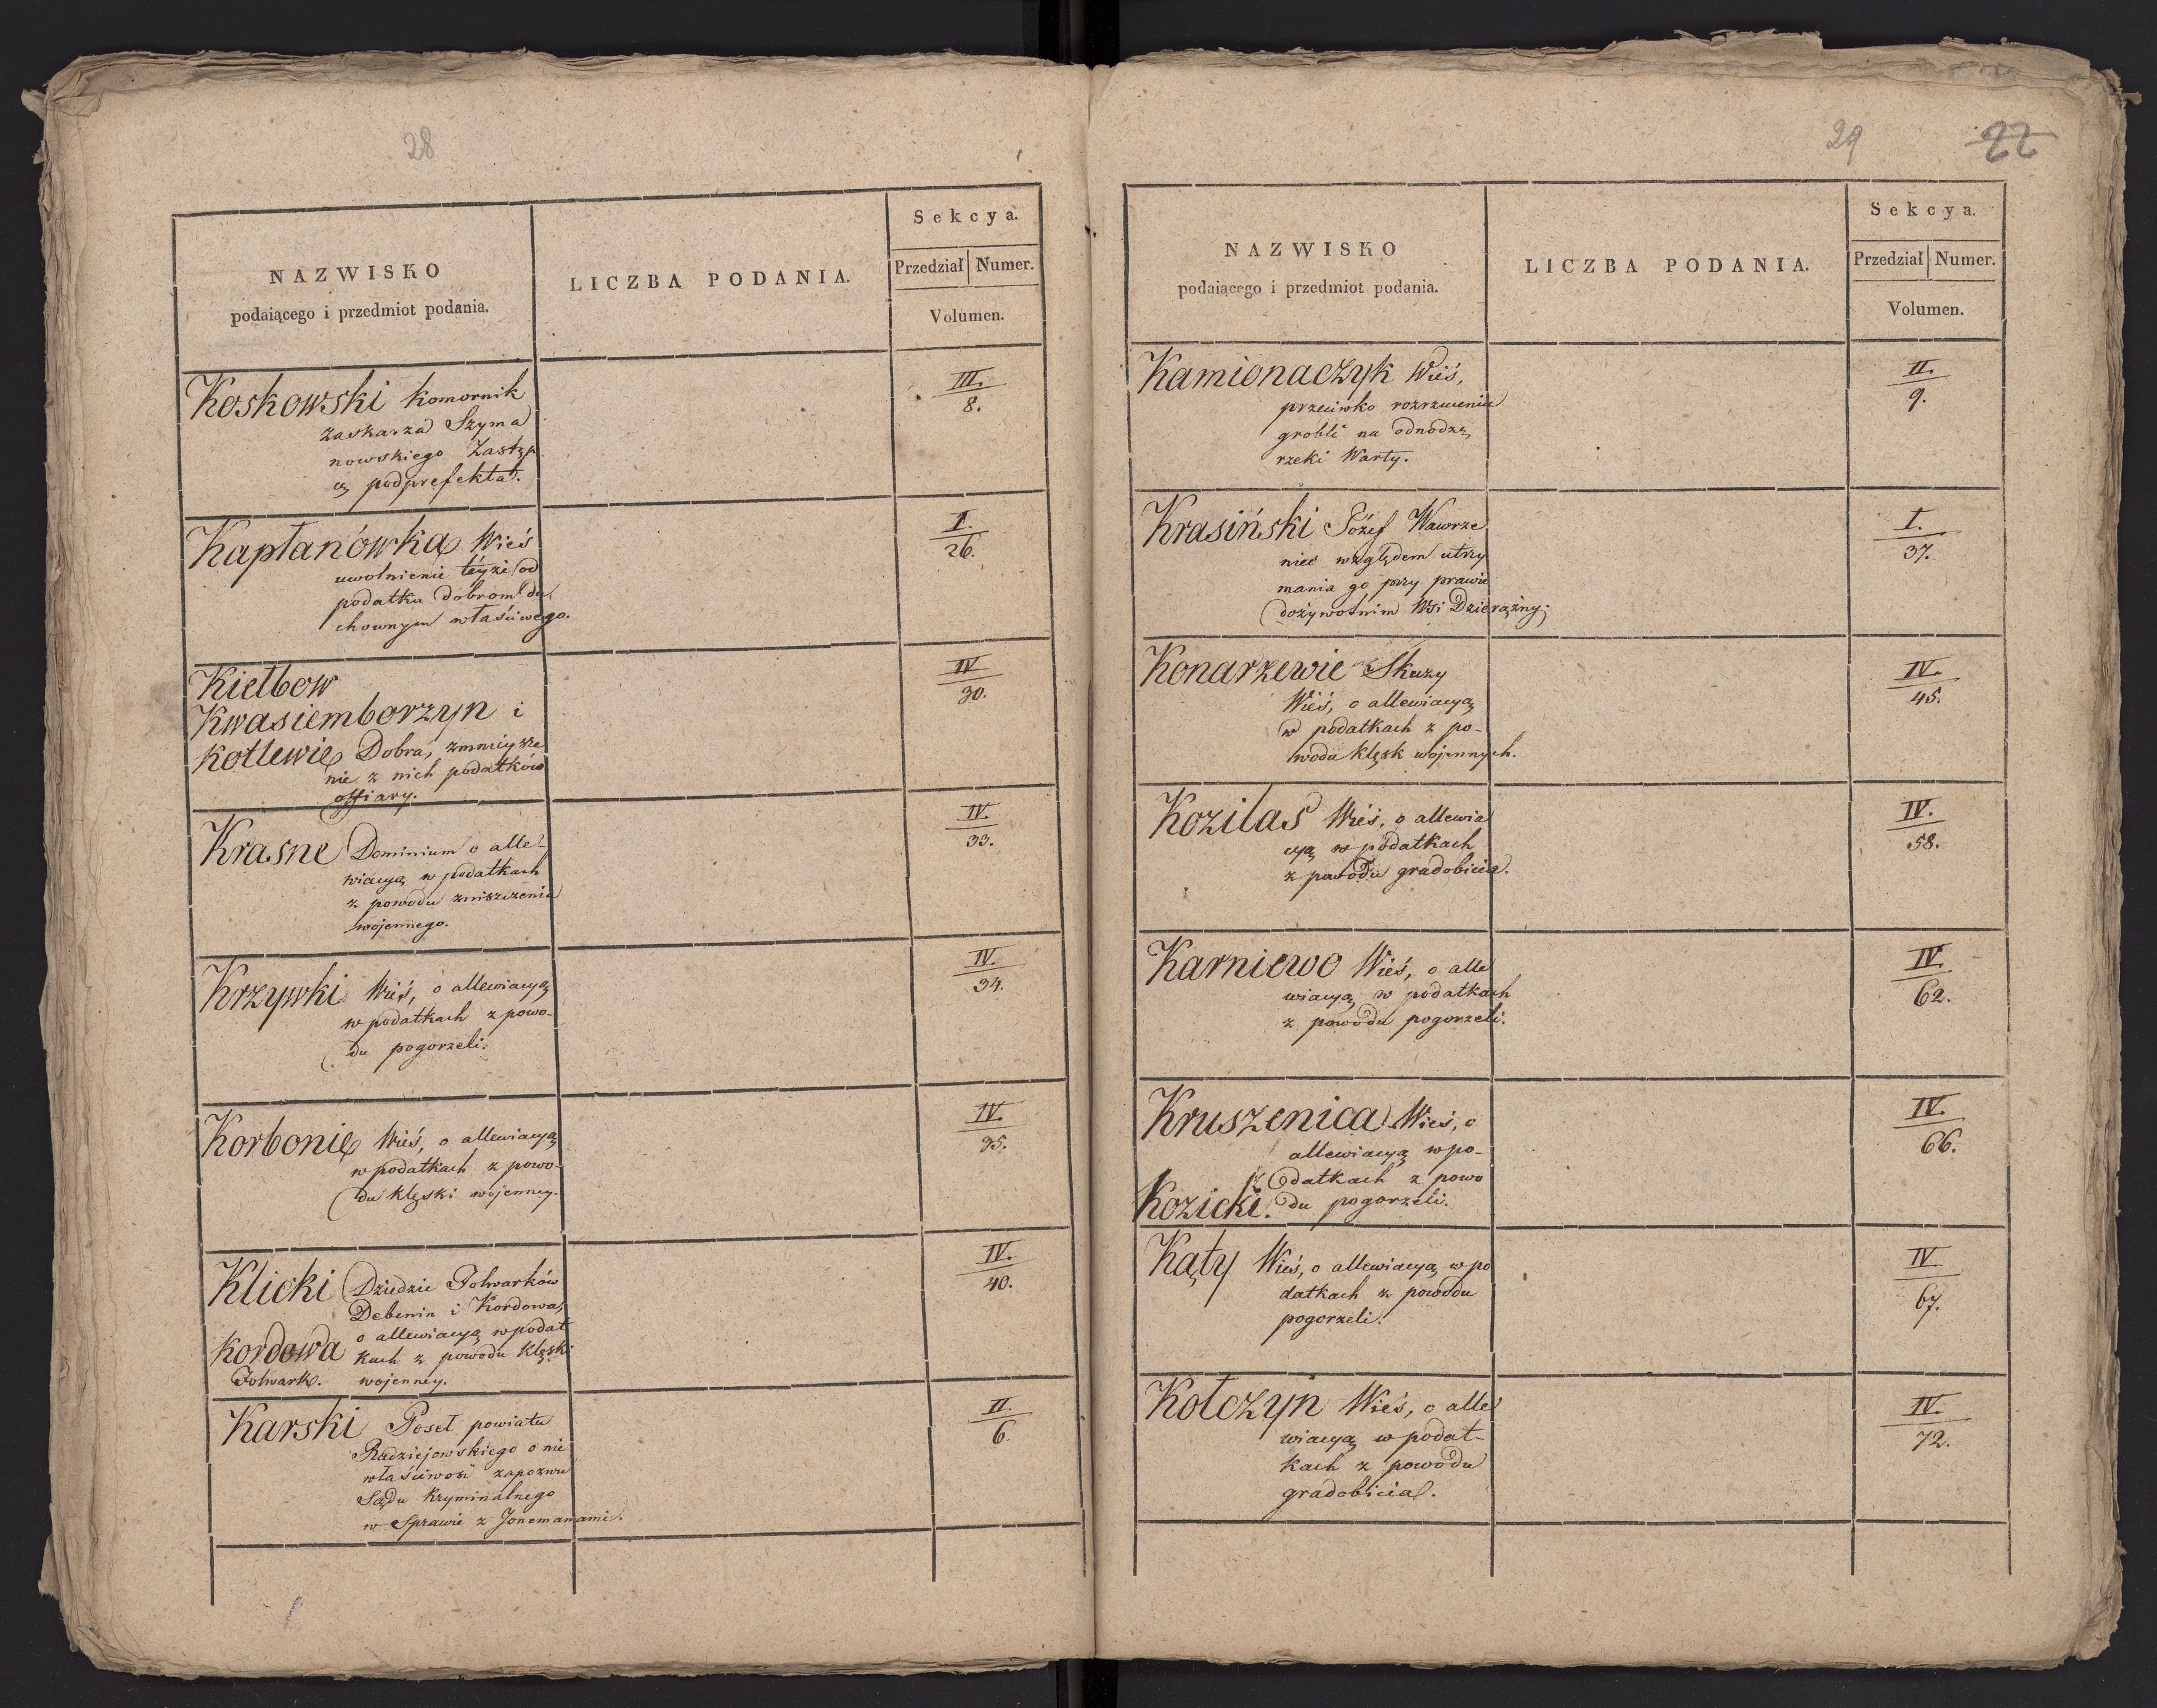 28
NAZWISKO
podaiącego i przedmiot podania.
LICZBA PODANIA.
Sekcya.
Przedział Numer.
Volumen.
Koskowski Komornik
zaskarza Szyma
nowskiego Zastęp
cę podprefekta.
III.
8.
Kapłanówka Wieś
uwolnienie teyże od
podatku dobrom du
chownym właściwego.
I.
26.
Kiełbow
Kwasiemborzyn i
Kotlewie Dobra, zmnieysze
nie z nich podatków
offiary.
IV
30.
Krasne Dominium o alle-
wiacyą w podatkach
z powodu zniszczenia
wojennego.
IV.
33.
Krzywki Wieś, o allewiacyą
w podatkach z powo-
du pogorzeli.
IV.
34.
Korbonie Wieś, o allewiacyą
w podatkach z powo-
du klęski wojenney.
IV.
35.
Klicki Dziedzic Folwarków
Debenin i Kordowa,
o allewiacyą w podat
Kordowa kach z powodu klęski
Folwark. wojenney.
IV.
40.
Karski Poseł powiatu
Radziejowskiego o nie
właściwość zapozwu
Sądu Kryminalnego
w Sprawie z Jonemanami.
II.
6.
29 22
NAZWISKO
podaiącego i przedmiot podania.
LICZBA PODANIA.
Sekcya.
Przedział Numer.
Volumen.
Kamionaczyk Wieś,
przeciwko rozrzuceniu
grobli na odnodze
rzeki Warty.
II.
9.
Krasiński Józef Wawrze
niec względem utrzy
mania go przy prawie
dożywotnim Wsi Dzierążny.
I.
37.
Konarzewie Skuzy
Wieś, o allewiacyą
w podatkach z po-
wodu klęsk wojennych.
IV.
45.
Kozilas Wieś, o allewia
cyą w podatkach
z powodu gradobicia.
IV.
58.
Karniewo Wieś, o alle
wiacyą w podatkach
z powodu pogorzeli.
IV.
62.
Kruszenica Wieś, o
allewiacyą w po-
datkach z powo
Kozicki. du pogorzeli.
IV.
66.
Kąty Wieś, o allewiacyą w po
datkach z powodu
pogorzeli.
IV
67.
Kołczyn Wieś, o alle
wiacyą w podat-
kach z powodu
gradobicia.
IV.
72.